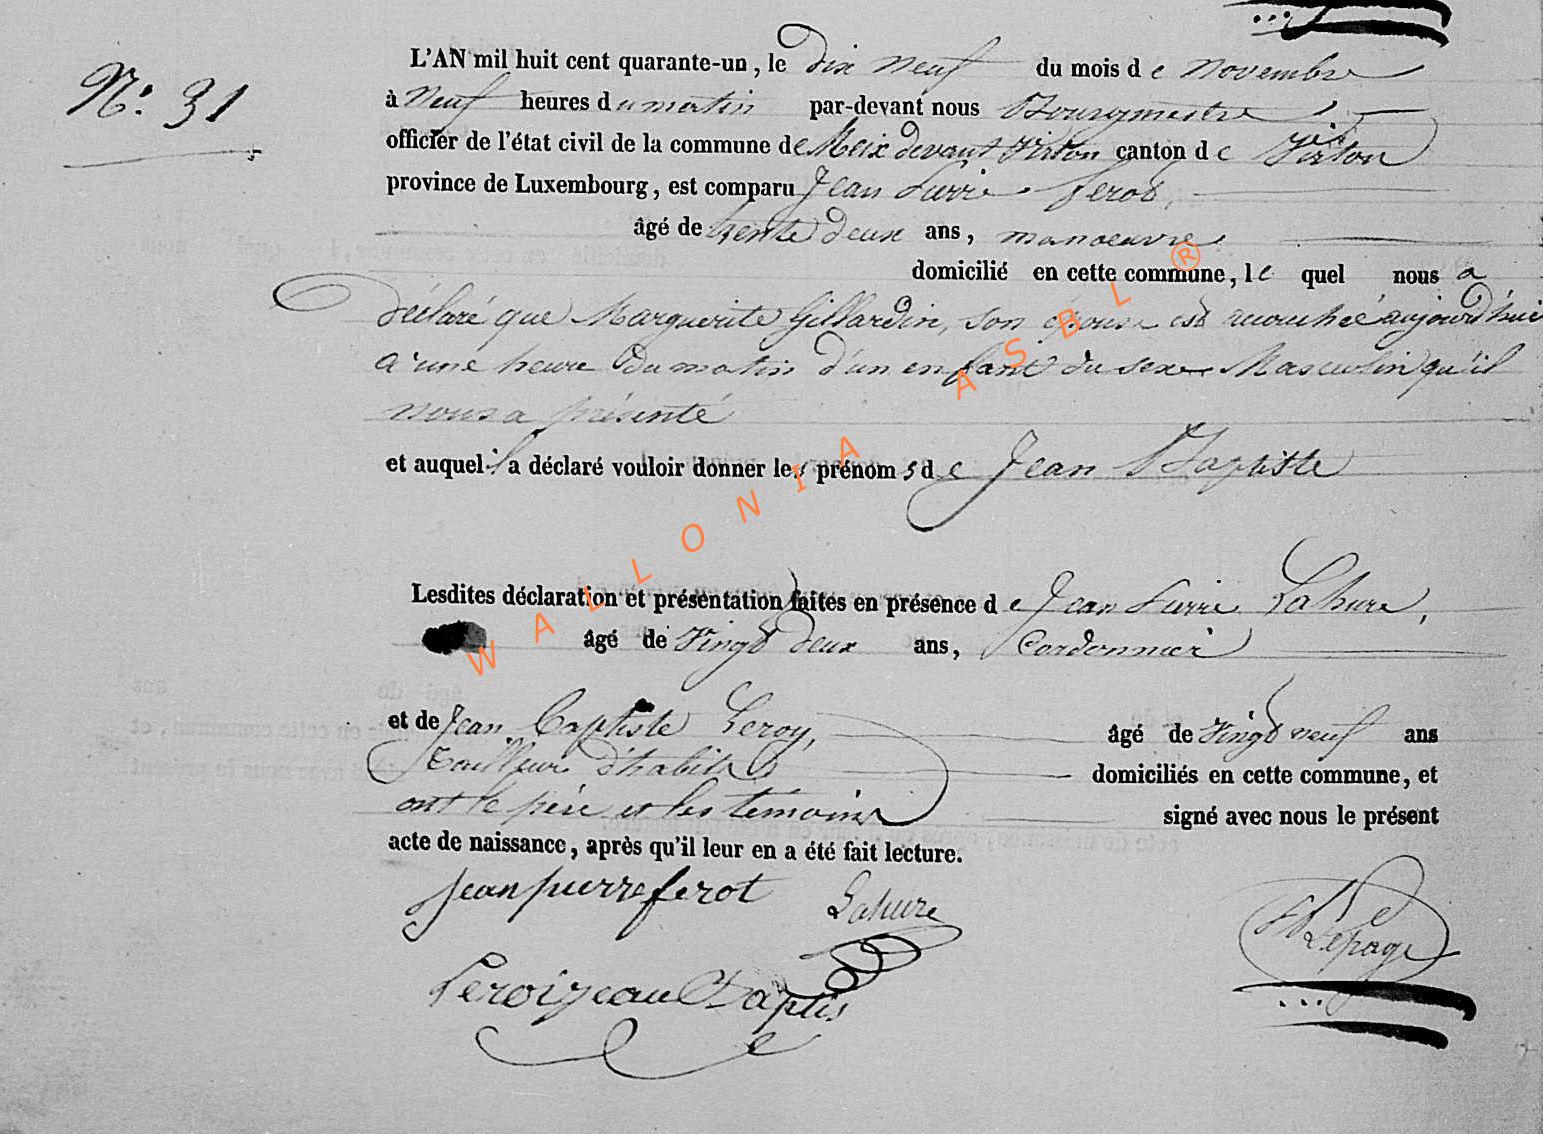 N°: 31
L'AN mil huit cent quarante-un, le dix neuf du mois de novembre
à neuf heures du matin par-devant nous Bourgmestre
officier de l'état civil de la commune de Meix devant Virton canton de Virton
province de Luxembourg, est comparu Jean Pierre ferot,
âgé de trente deux ans, manoeuvre
domicilié en cette commune, le quel nous a
déclaré que Marguerite Gillardin, son épouse est accouchée aujourd'hui
à une heure du matin d'un enfant du sexe Masculin qu'il
nous a présenté
et auquel il a déclaré vouloir donner les prénoms de Jean Baptiste
Lesdites déclaration et présentation faites en présence de Jean Pierre Lahure,
âgé de Vingt deux ans, Cordonnier
et de Jean Baptiste Leroy, âgé de Vingt neuf ans
Tailleur d'habits domiciliés en cette commune, et
ont le père et les témoins signé avec nous le présent
acte de naissance, après qu'il leur en a été fait lecture.
jean pierre ferot Lahure
Lepage
Leroi jean Baptis
WALLONIA ASBL ®